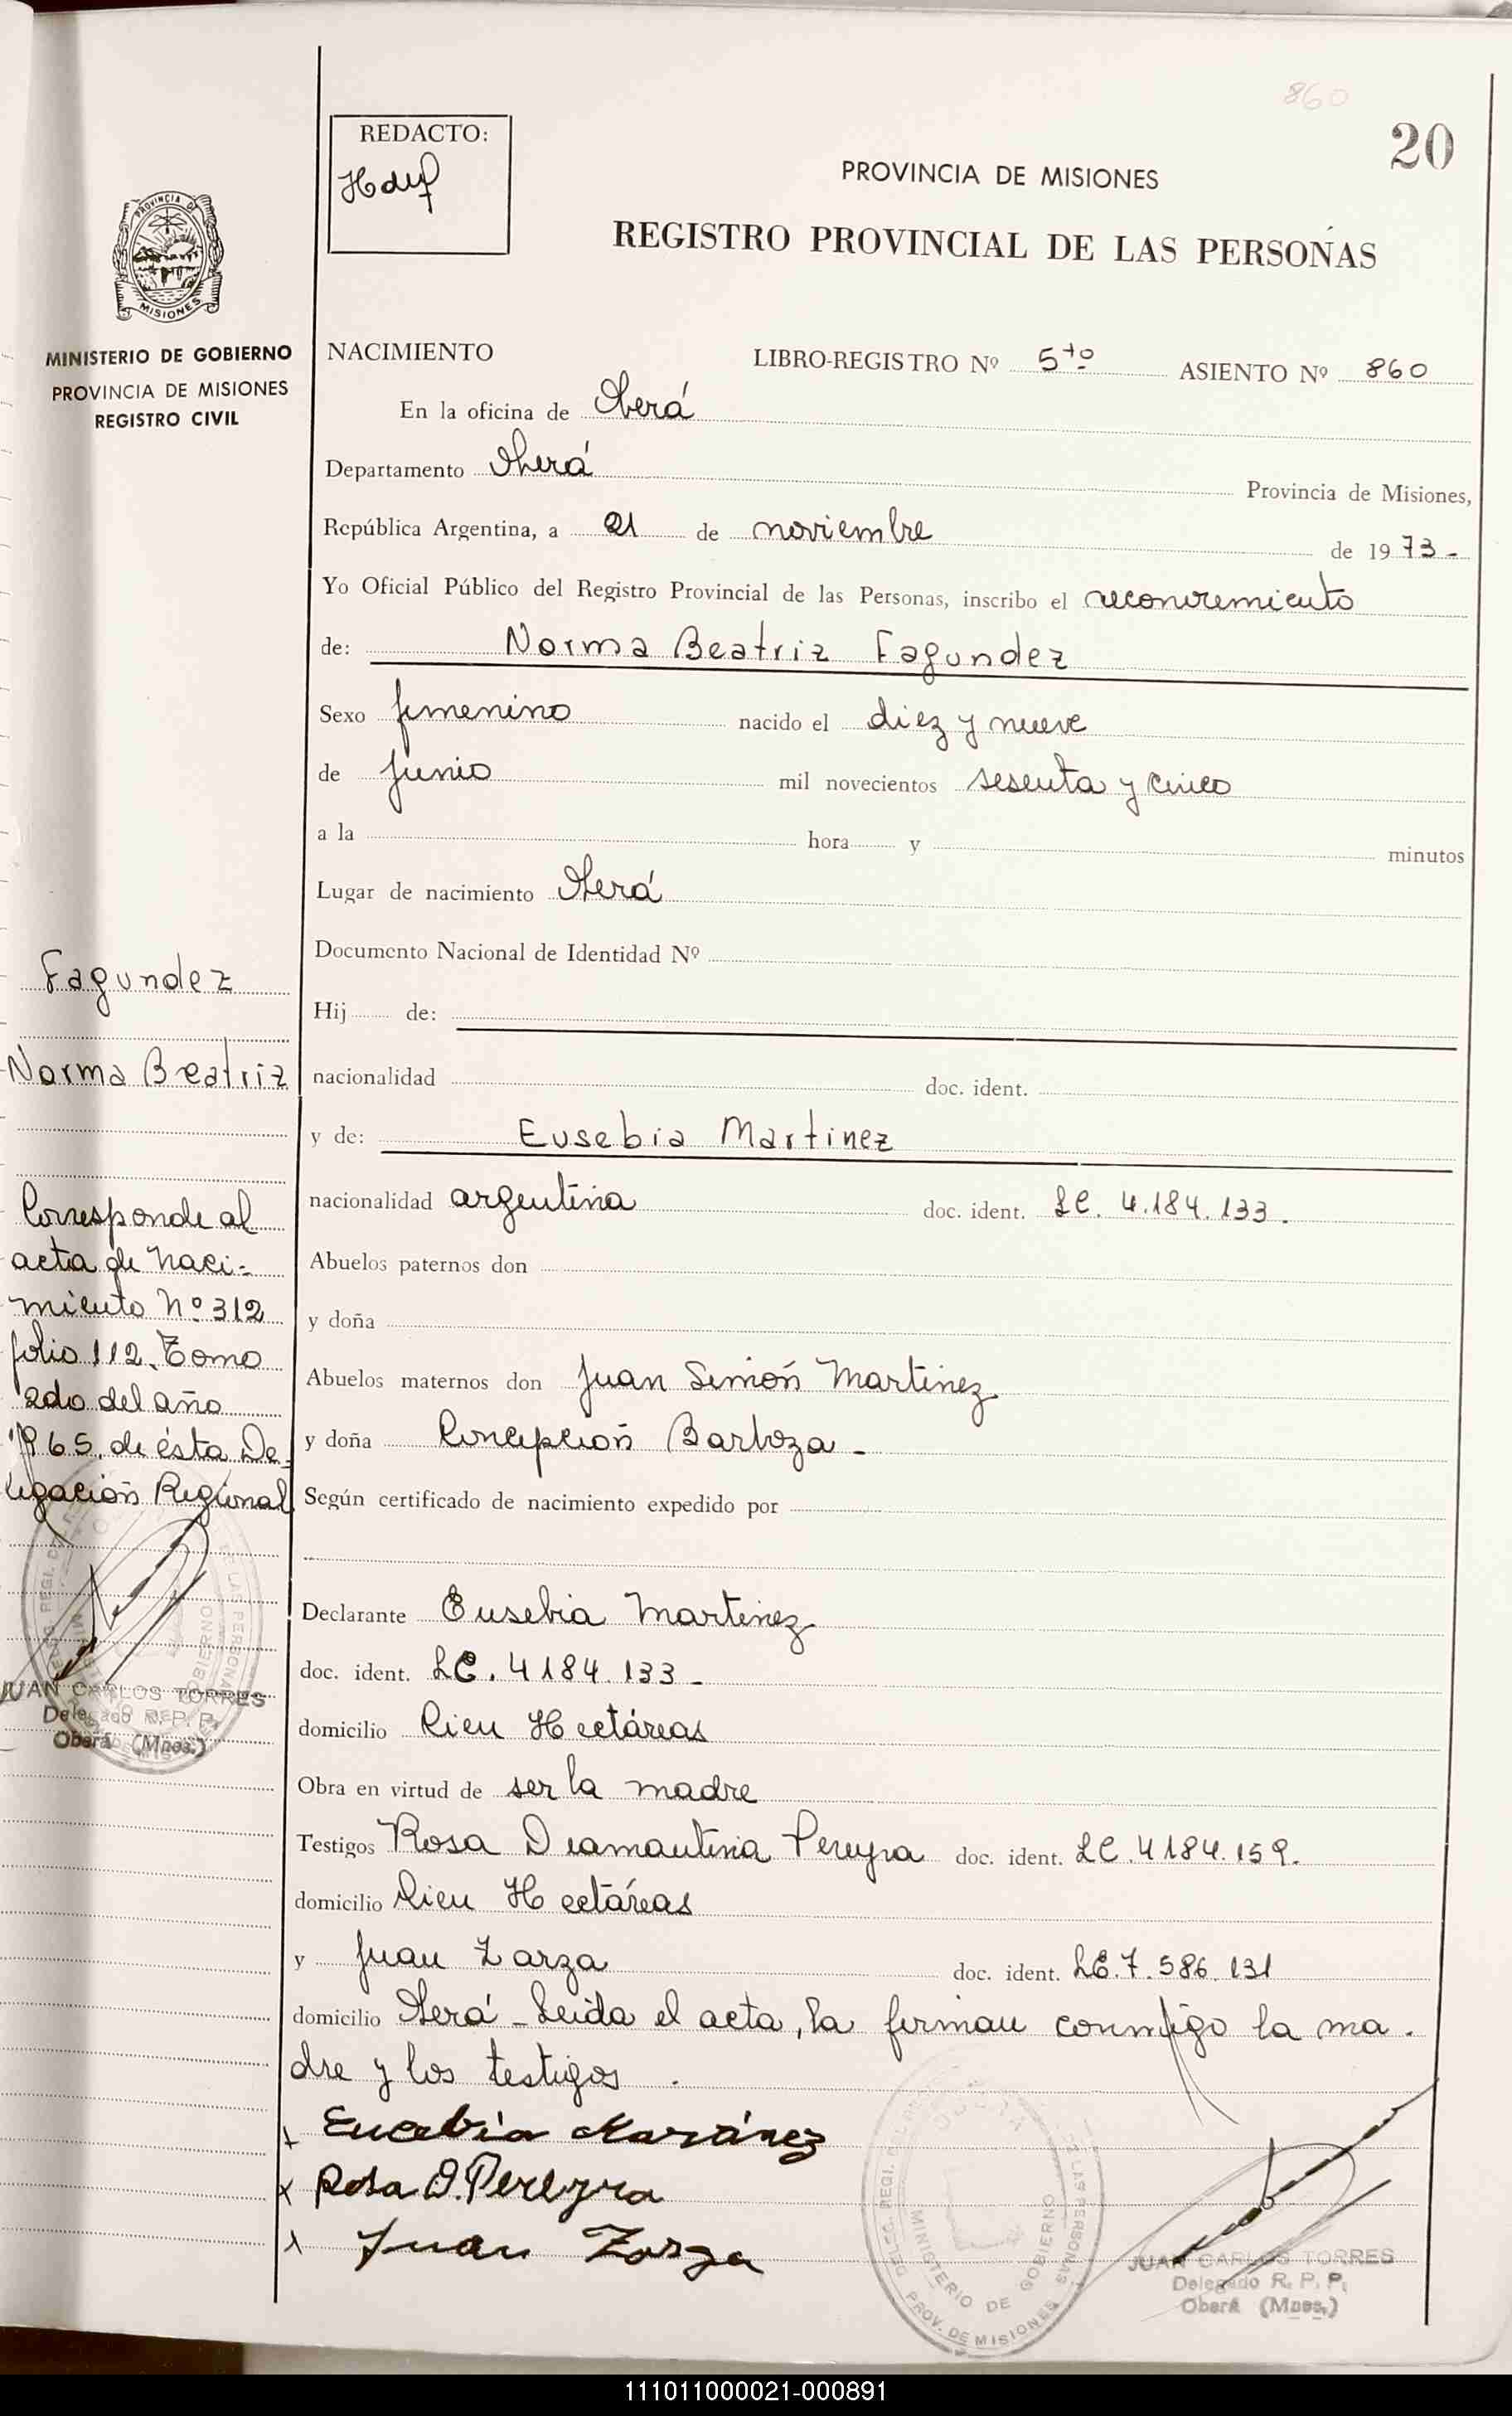 860
20
REDACTO:
PROVINCIA DE MISIONES
REGISTRO PROVINCIAL DE LAS PERSONAS
PROVINCIA DE
MISIONES
MINISTERIO DE GOBIERNO
PROVINCIA DE MISIONES
REGISTRO CIVIL
NACIMIENTO LIBRO-REGISTRO Nº 5to ASIENTO Nº 860
En la oficina de Oberá
Departamento Oberá Provincia de Misiones,
República Argentina, a 21 de noviembre de 1973-
Yo Oficial Público del Registro Provincial de las Personas, inscribo el reconocimiento
de: Norma Beatriz Fagundez
Sexo femenino nacido el diez y nueve
de junio mil novecientos sesenta y cinco
a la hora y minutos
Lugar de nacimiento Oberá
Documento Nacional de Identidad Nº
Hij de:
nacionalidad doc. ident.
y de: Eusebia Martinez
nacionalidad argentina doc. ident. LC. 4.184.133.
Abuelos paternos don
y doña
Abuelos maternos don Juan Simón Martinez
y doña Concepción Barboza-
Según certificado de nacimiento expedido por
Declarante Eusebia Martinez
doc. ident. LC. 4184.133-
domicilio Cien Hectáreas
Obra en virtud de ser la madre
Testigos Rosa Diamantina Pereyra doc. ident. LC.4184.159.
domicilio Cien Hectáreas
y Juan Zarza doc. ident. LE.7.586.131
domicilio Oberá-Leída el acta, la firman conmigo la ma-
dre y los testigos.
x Eucebia Martínez
x Rosa D. Pereyra
x Juan Zarza
Fagundez
Norma Beatriz
Corresponde al
acta de naci-
miento Nº 312
folio 112. Tomo
2do del año
1965. de ésta De-
legación Regional
JUAN CARLOS TORRES
Delegado R. P. P.
Oberá (Mnes.)
DELEG. REGI. DE LAS PERSONAS
MINISTERIO DE GOBIERNO
PROV. DE MISIONES
JUAN CARLOS TORRES
Delegado R. P. P.
Oberá (Mnes.)
111011000021-000891